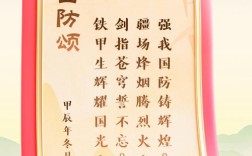 国防颂
甲辰年冬月
铁甲生辉耀国光，
剑指苍穹誓不忘。
疆场烽烟腾烈火，
强我国防铸辉煌。